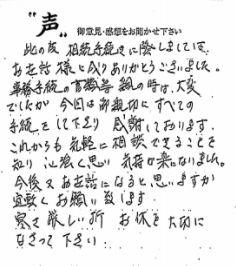 “声”
御意見・感想をお聞かせ下さい
此の度 相続手続きに際しまして、
お世話様に成りありがとうございました。
事務手続の 親の時は、大変
でしたが 今回は御親切にすべての
手続をして下さり 感謝しております。
これからも気軽に相談できることを
知り 心強く思い 気持が楽になりました。
今後又お世話になると思いますが
宜敷くお願い致します。
寒さ厳しい折 お体を大切に
なさって下さい。